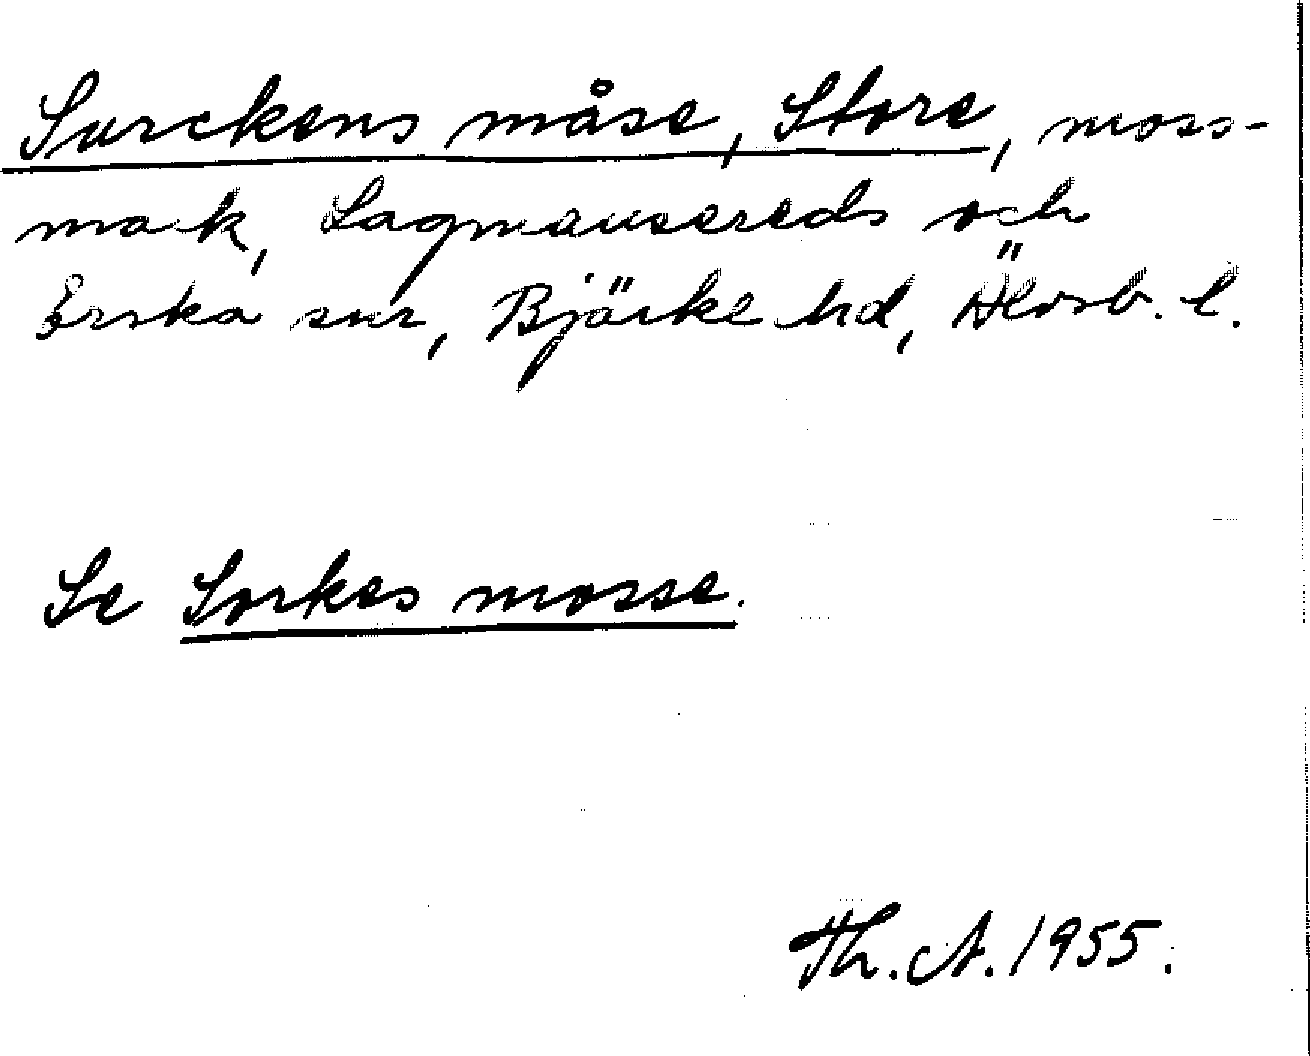 Surckens måse, Store, moss-
mark, Lagmansereds och
Erska snr, Bjärke hd, Älvsb. l.
Se Sorkes mosse.
Th. A. 1955.